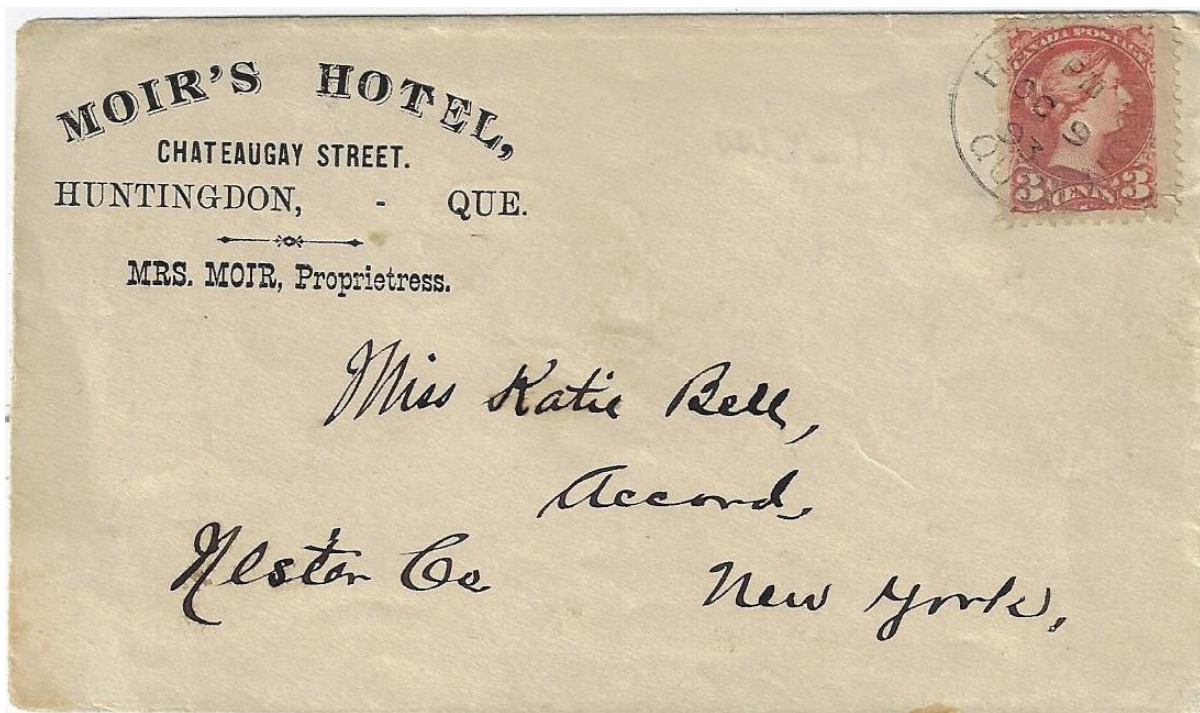 MOIR'S HOTEL,
CHATEAUGAY STREET.
HUNTINGDON, - QUE.
MRS. MOIR, Proprietress.
CANADA POSTAGE
3 CENTS 3
PM
93
QUE
Miss Katie Bell,
Accord,
Ulster Co
New York,